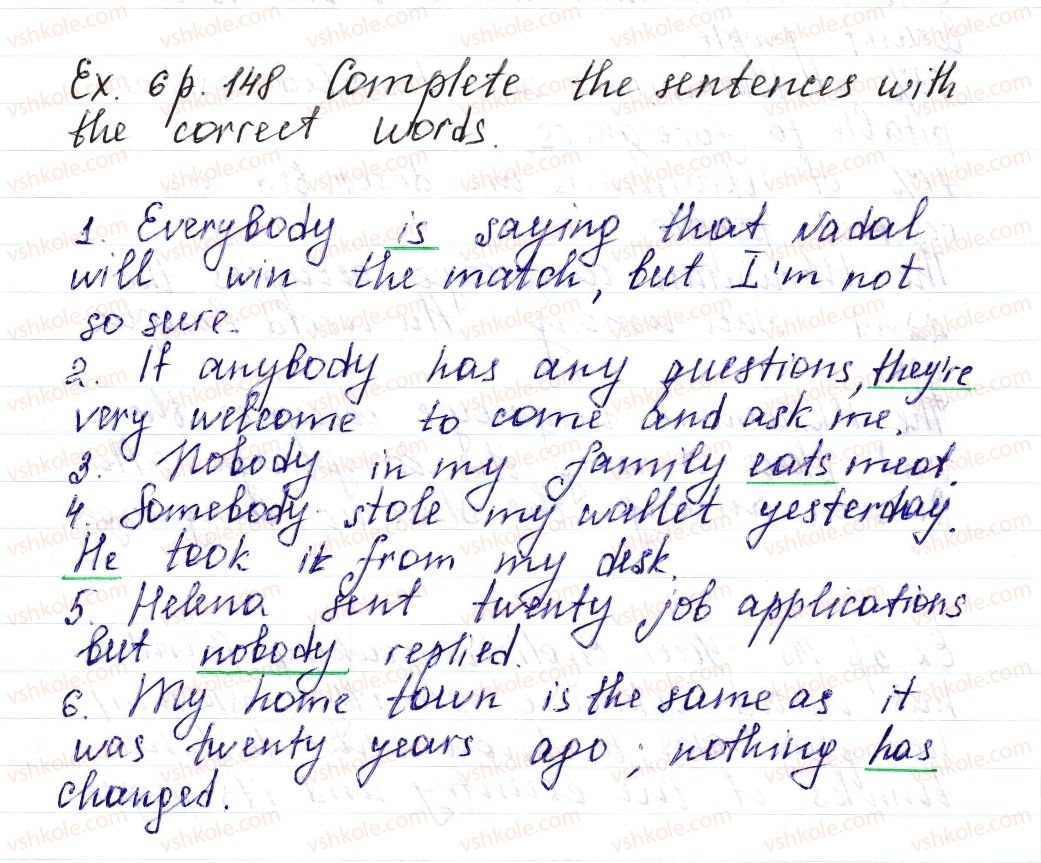 Ex. 6 p. 148 Complete the sentences with
the correct words.
1. Everybody is saying that Nadal
will win the match, but I'm not
so sure.
2. If anybody has any questions, they're
very welcome to come and ask me.
3. Nobody in my family eats meat.
4. Somebody stole my wallet yesterday.
He took it from my desk.
5. Helena sent twenty job applications
but nobody replied.
6. My home town is the same as it
was twenty years ago; nothing has
changed.